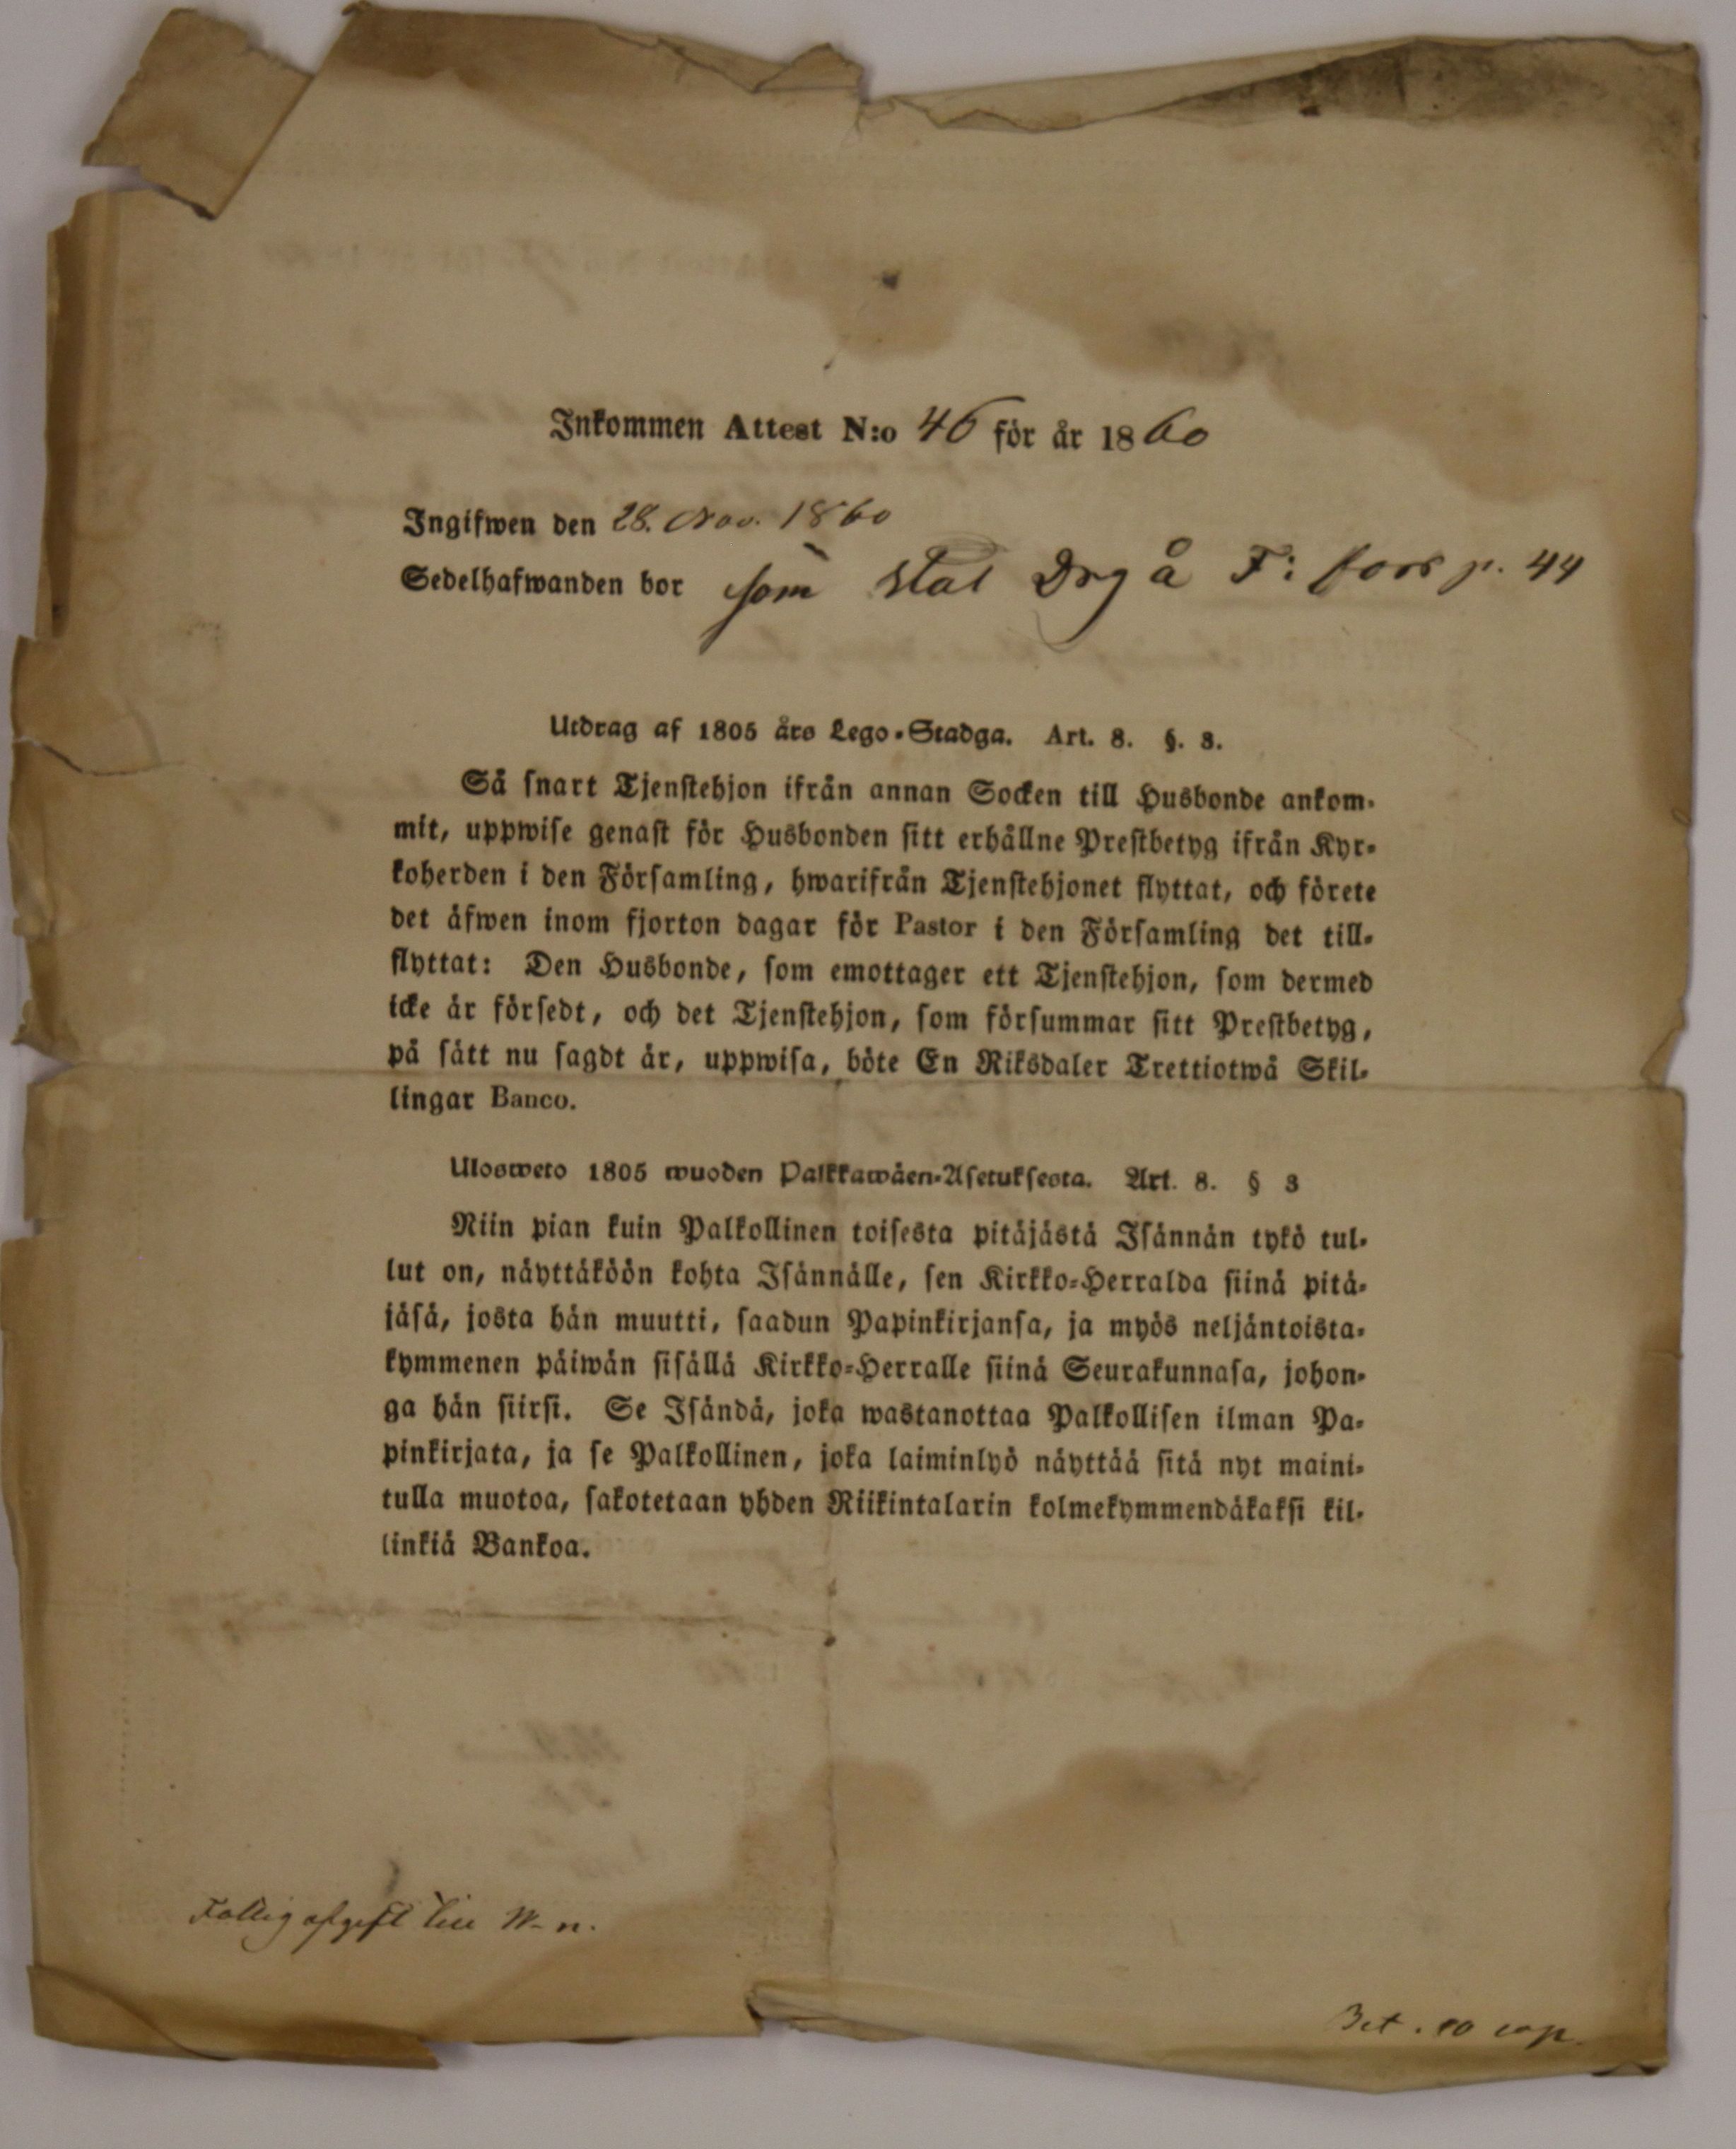 Inkommen Attest N:o 46 för år 1860
Ingifwen den 28. Nov. 1860
Sedelhafwanden bor som Stat Drg å F: fors p. 44
Utdrag af 1805 års Lego-Stadga. Art. 8. §. 3.
Så snart Tjenstehjon ifrån annan Socken till Husbonde ankom-
mit, uppwise genast för Husbonden sitt erhållne Prestbetyg ifrån Kyr-
koherden i den Församling, hwarifrån Tjenstehjonet flyttat, och förete
det äfwen inom fjorton dagar för Pastor i den Församling det till-
flyttat: Den Husbonde, som emottager ett Tjenstehjon, som dermed
icke är försedt, och det Tjenstehjon, som försummar sitt Prestbetyg,
på sätt nu sagdt är, uppwisa, böte En Riksdaler Trettiotwå Skil-
lingar Banco.
Ulosweto 1805 wuoden Palkkawäen-Asetuksesta. Art. 8. § 3
Niin pian kuin Palkollinen toisesta pitäjästä Isännän tykö tul-
lut on, näyttäköön kohta Isännälle, sen Kirkko-Herralda siinä pitä-
jäsä, josta hän muutti, saadun Papinkirjansa, ja myös neljäntoista-
kymmenen päiwän sisällä Kirkko-Herralle siinä Seurakunnasa, johon-
ga hän siirsi. Se Isändä, joka wastanottaa Palkollisen ilman Pa-
pinkirjata, ja se Palkollinen, joka laiminlyö näyttää sitä nyt maini-
tulla muotoa, sakotetaan yhden Riikintalarin kolmekymmendäkaksi kil-
linkiä Bankoa.
Fattig afgift till W-n.
Bet. 10 cop.